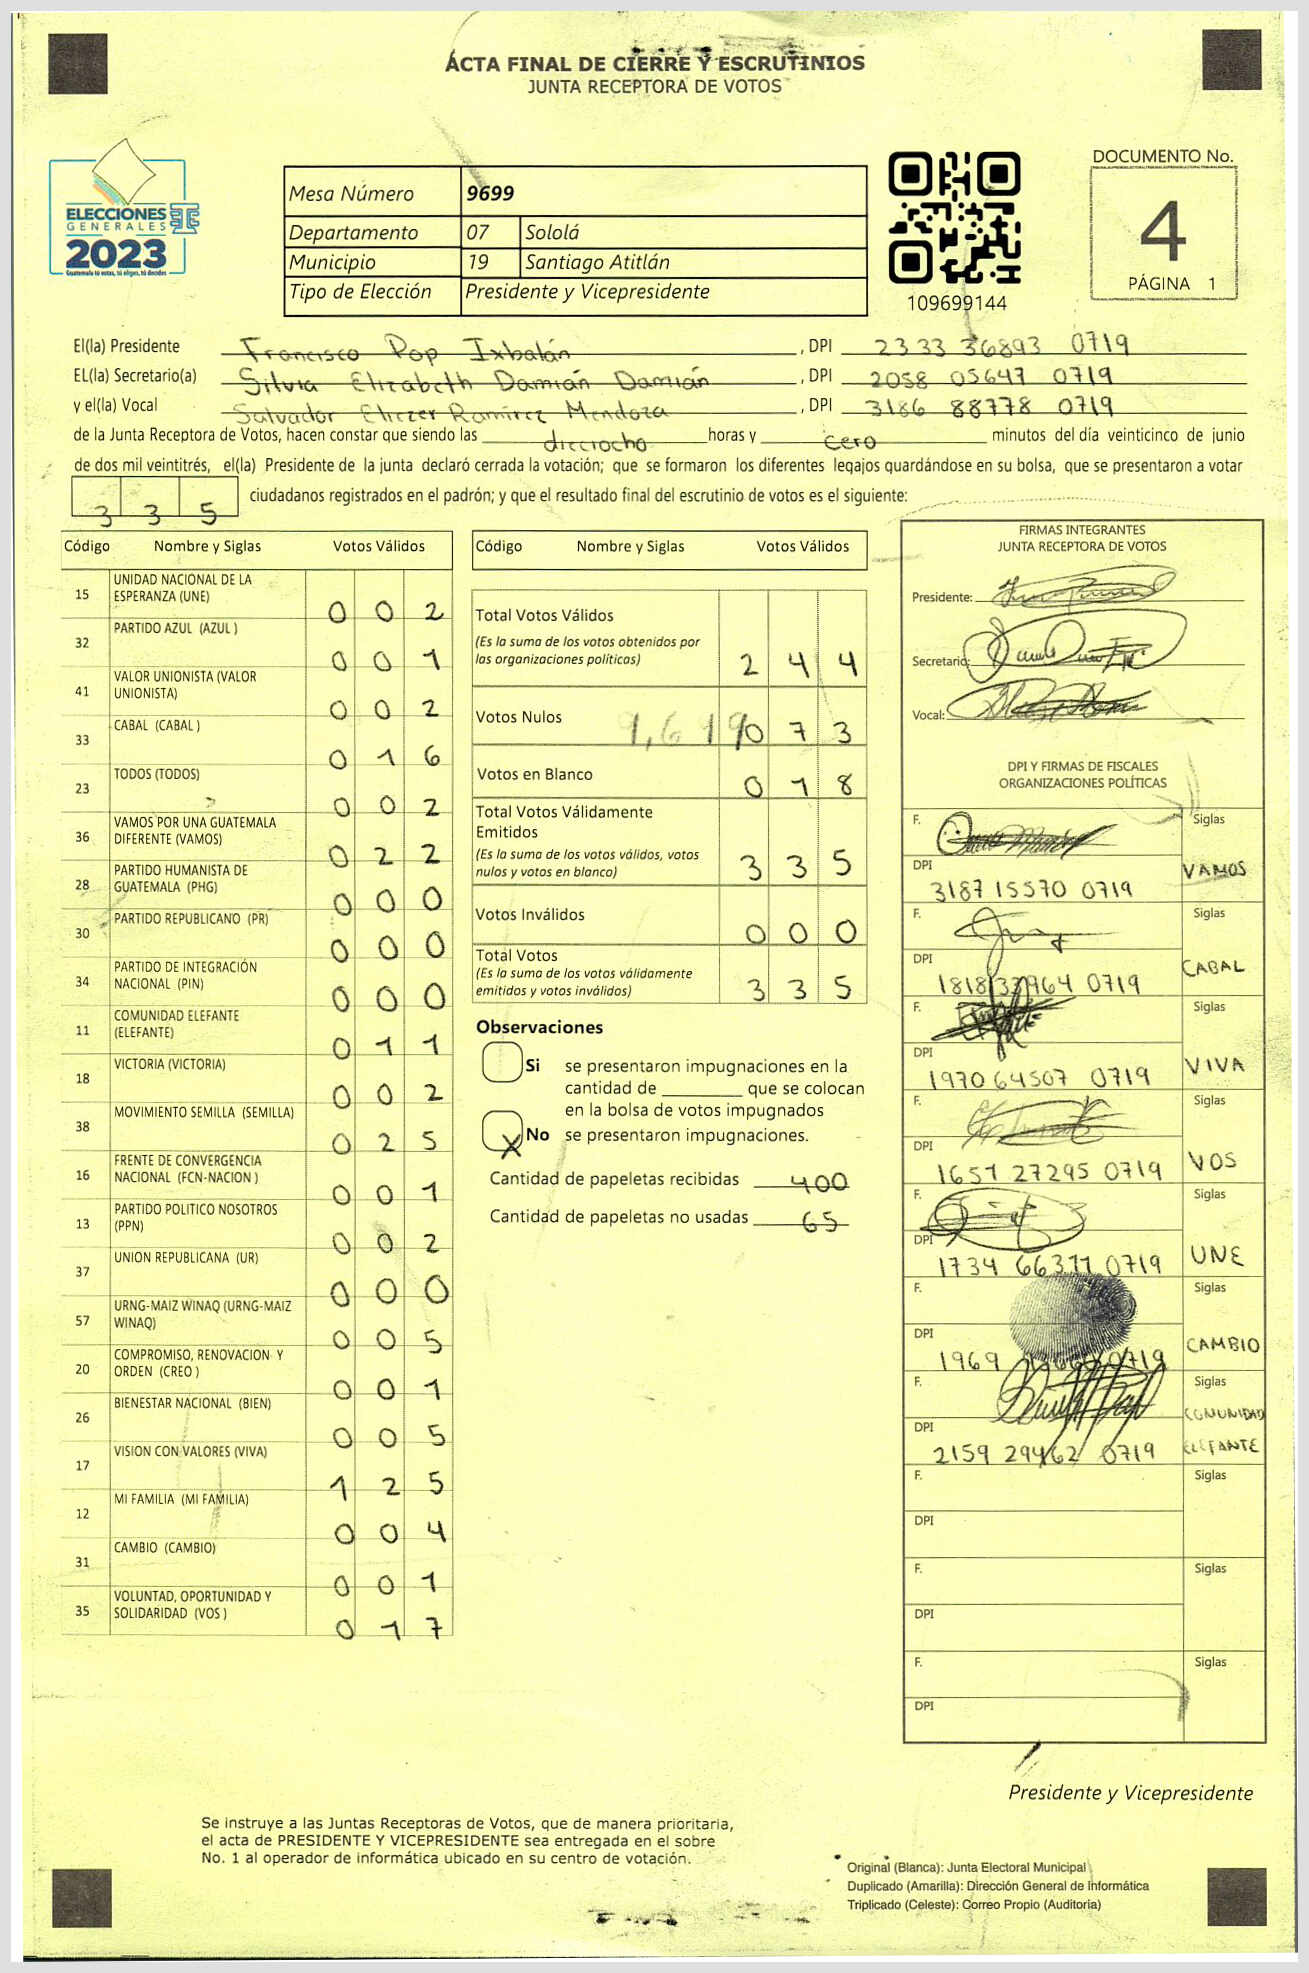 ACTA FINAL DE CIERRE Y ESCRUTINIOS
JUNTA RECEPTORA DE VOTOS
ELECCIONES
GENERALES
2023
Guatemala tú votas, tú eliges, tú decides
Mesa Número 9699
Departamento 07 Sololá
Municipio 19 Santiago Atitlán
Tipo de Elección Presidente y Vicepresidente
109699144
DOCUMENTO No.
4
PÁGINA 1
El(la) Presidente Francisco Pop Ixbalán , DPI 2333 36893 0719
EL(la) Secretario(a) Silvia Elizabeth Damián Damián , DPI 2058 05647 0719
y el(la) Vocal Salvador Eliezer Ramírez Mendoza , DPI 3186 88778 0719
de la Junta Receptora de Votos, hacen constar que siendo las dieciocho horas y cero minutos del día veinticinco de junio
de dos mil veintitrés, el(la) Presidente de la junta declaró cerrada la votación; que se formaron los diferentes legajos quardándose en su bolsa, que se presentaron a votar
3 3 5 ciudadanos registrados en el padrón; y que el resultado final del escrutinio de votos es el siguiente:
Código Nombre y Siglas Votos Válidos
15 UNIDAD NACIONAL DE LA ESPERANZA (UNE) 0 0 2
32 PARTIDO AZUL (AZUL ) 0 0 1
41 VALOR UNIONISTA (VALOR UNIONISTA) 0 0 2
33 CABAL (CABAL ) 0 1 6
23 TODOS (TODOS) 0 0 2
36 VAMOS POR UNA GUATEMALA DIFERENTE (VAMOS) 0 2 2
28 PARTIDO HUMANISTA DE GUATEMALA (PHG) 0 0 0
30 PARTIDO REPUBLICANO (PR) 0 0 0
34 PARTIDO DE INTEGRACIÓN NACIONAL (PIN) 0 0 0
11 COMUNIDAD ELEFANTE (ELEFANTE) 0 1 1
18 VICTORIA (VICTORIA) 0 0 2
38 MOVIMIENTO SEMILLA (SEMILLA) 0 2 5
16 FRENTE DE CONVERGENCIA NACIONAL (FCN-NACION ) 0 0 1
13 PARTIDO POLITICO NOSOTROS (PPN) 0 0 2
37 UNION REPUBLICANA (UR) 0 0 0
57 URNG-MAIZ WINAQ (URNG-MAIZ WINAQ) 0 0 5
20 COMPROMISO, RENOVACION Y ORDEN (CREO ) 0 0 1
26 BIENESTAR NACIONAL (BIEN) 0 0 5
17 VISION CON VALORES (VIVA) 1 2 5
12 MI FAMILIA (MI FAMILIA) 0 0 4
31 CAMBIO (CAMBIO) 0 0 1
35 VOLUNTAD, OPORTUNIDAD Y SOLIDARIDAD (VOS ) 0 1 7
Código Nombre y Siglas Votos Válidos
Total Votos Válidos
(Es la suma de los votos obtenidos por
las organizaciones políticas) 2 4 4
Votos Nulos 9,619 0 7 3
Votos en Blanco 0 1 8
Total Votos Válidamente
Emitidos
(Es la suma de los votos válidos, votos
nulos y votos en blanco) 3 3 5
Votos Inválidos 0 0 0
Total Votos
(Es la suma de los votos válidamente
emitidos y votos inválidos) 3 3 5
Observaciones
Si se presentaron impugnaciones en la
cantidad de ________ que se colocan
en la bolsa de votos impugnados
X No se presentaron impugnaciones.
Cantidad de papeletas recibidas 400
Cantidad de papeletas no usadas 65
FIRMAS INTEGRANTES
JUNTA RECEPTORA DE VOTOS
Presidente:
Secretario:
Vocal:
DPI Y FIRMAS DE FISCALES
ORGANIZACIONES POLÍTICAS
F. Siglas
DPI 3187 15570 0719 VAMOS
F. Siglas
DPI 1818 33964 0719 CABAL
F. Siglas
DPI 1970 64507 0719 VIVA
F. Siglas
DPI 1651 27295 0719 VOS
F. Siglas
DPI 1734 66311 0719 UNE
F. Siglas
DPI 1969 0719 CAMBIO
F. Siglas
DPI 2159 29462 0719 COMUNIDAD ELEFANTE
F. Siglas
DPI
F. Siglas
DPI
F. Siglas
DPI
Presidente y Vicepresidente
Se instruye a las Juntas Receptoras de Votos, que de manera prioritaria,
el acta de PRESIDENTE Y VICEPRESIDENTE sea entregada en el sobre
No. 1 al operador de informática ubicado en su centro de votación.
Original (Blanca): Junta Electoral Municipal
Duplicado (Amarilla): Dirección General de Informática
Triplicado (Celeste): Correo Propio (Auditoria)